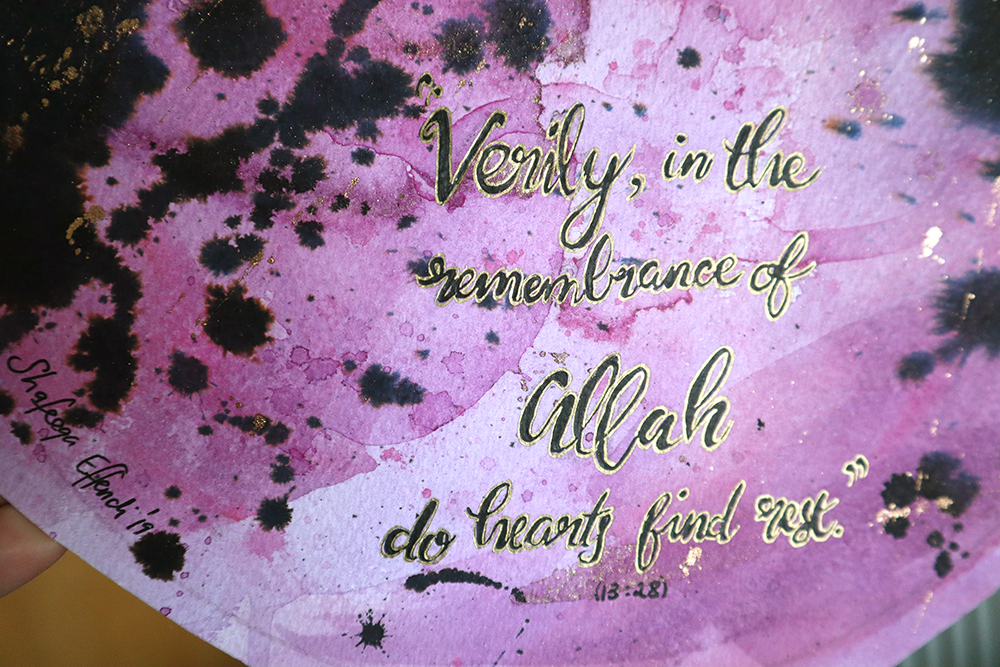 "Verily, in the
remembrance of
Allah
do hearts find rest."
(13:28)
Shafeeqa
Effendi '19